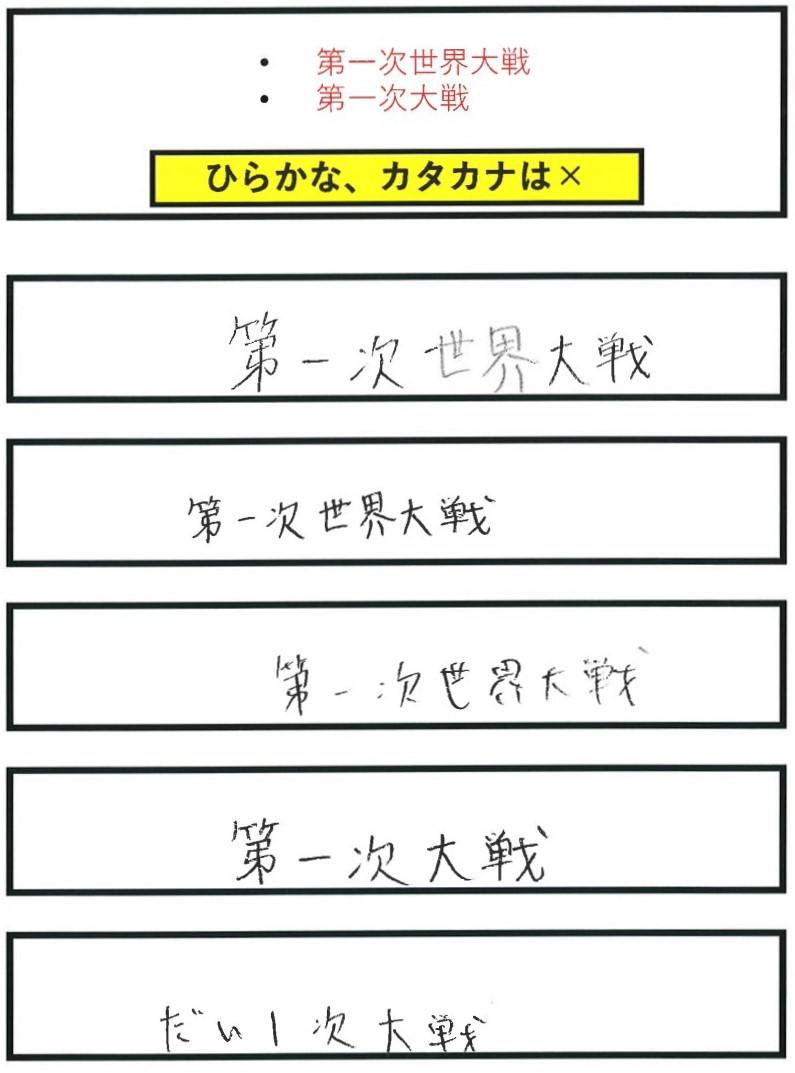 • 第一次世界大戦
• 第一次大戦
ひらかな、カタカナは×
第一次世界大戦
第一次世界大戦
第一次世界大戦
第一次大戦
だい1次大戦